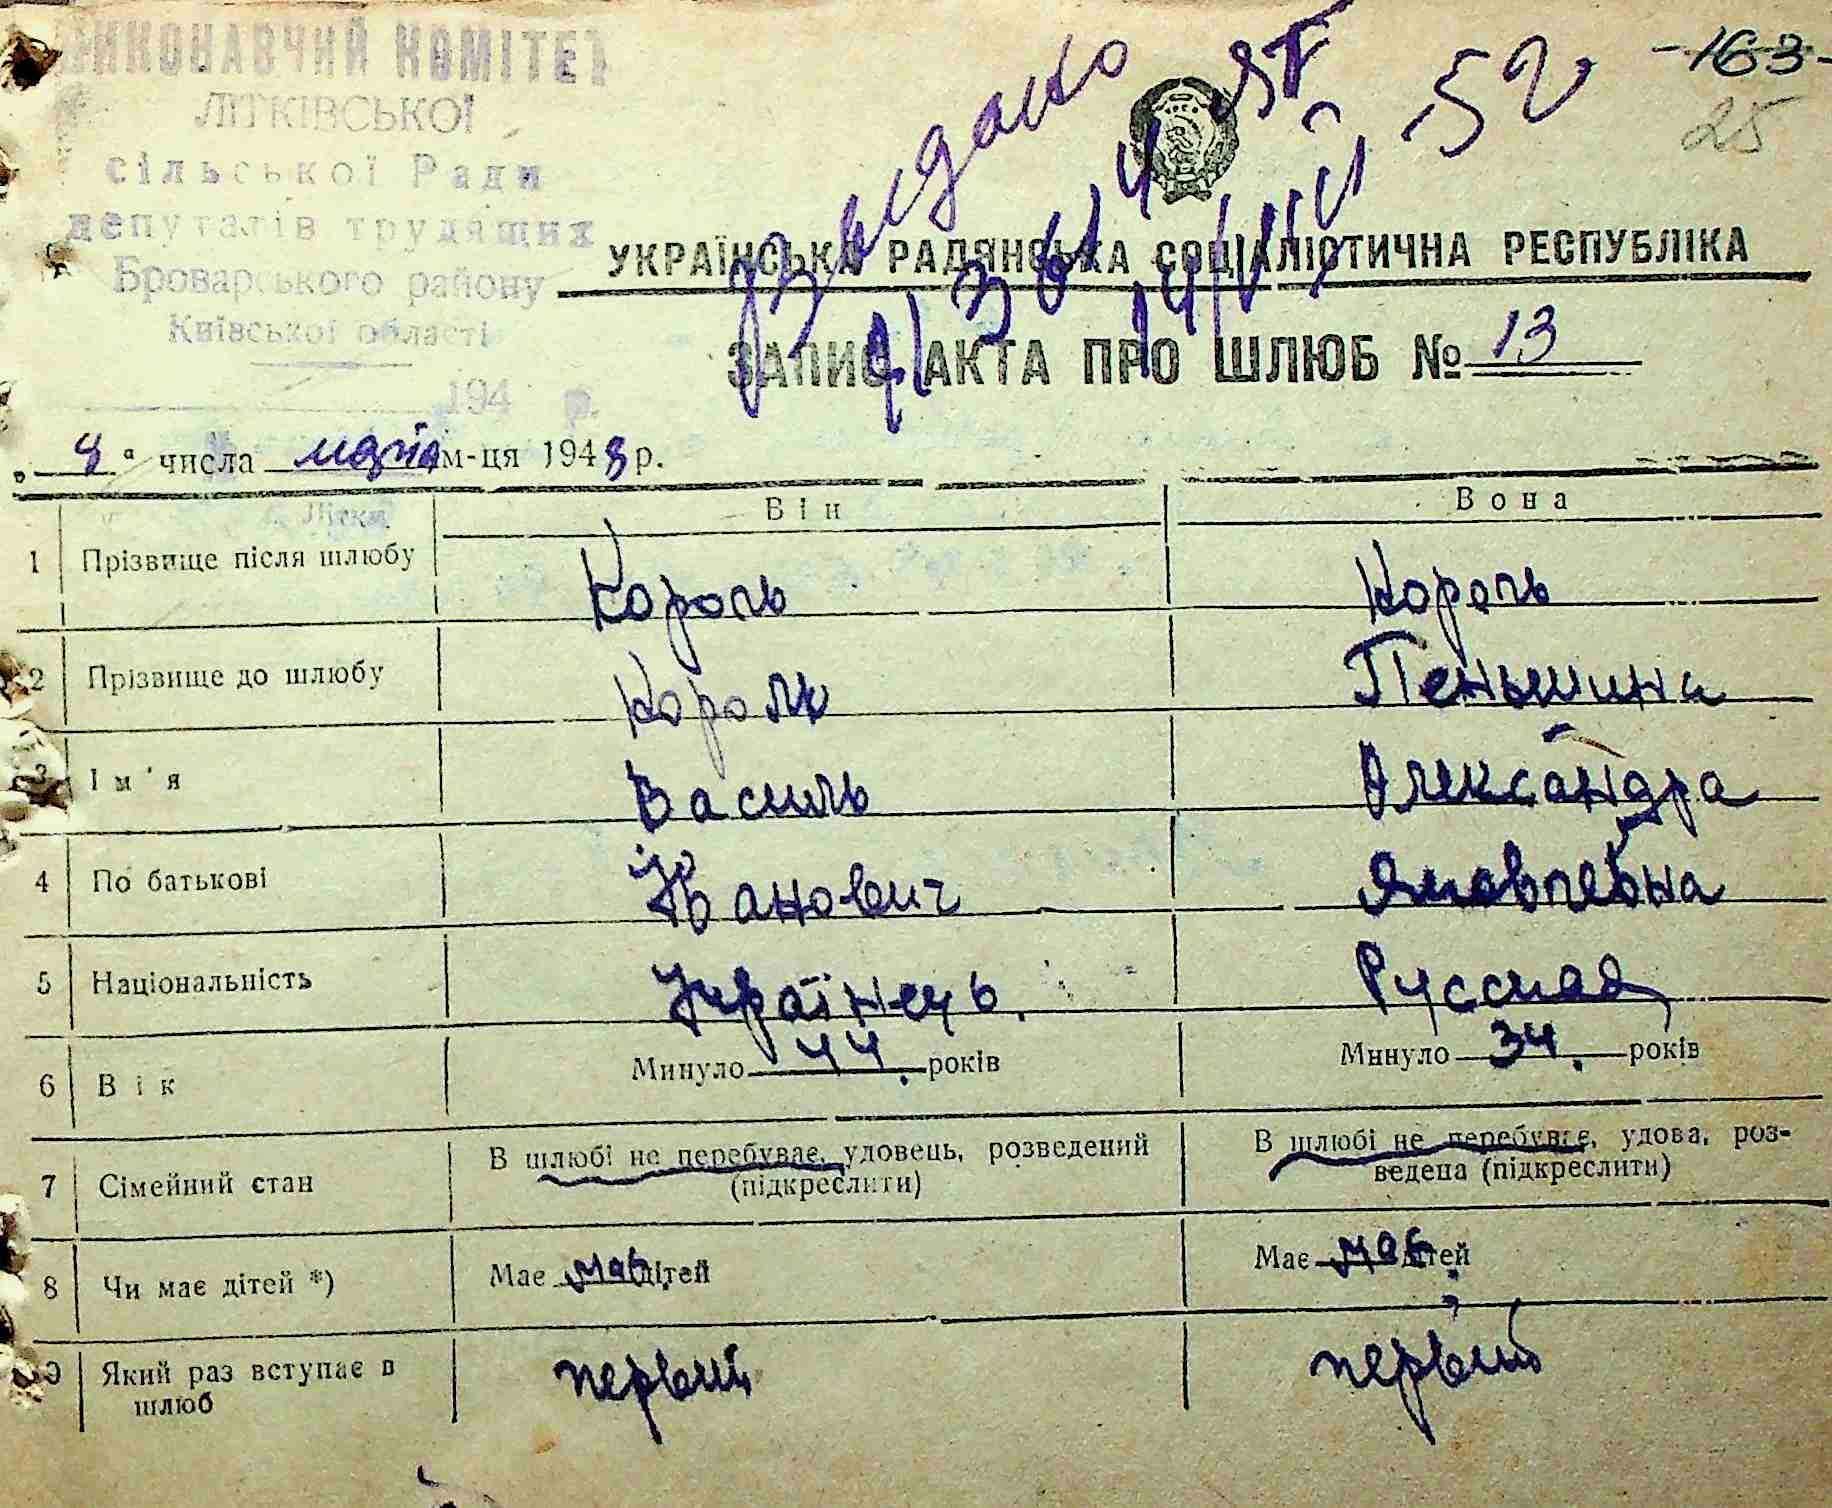 ВИКОНАВЧИЙ КОМІТЕТ
ЛІТКІВСЬКОЇ
сільської Ради
депутатів трудящих
Броварського району
Київської області
194 р.
Літки
-163-
25
Видано
14/VIII-52
УКРАЇНСЬКА РАДЯНСЬКА СОЦІАЛІСТИЧНА РЕСПУБЛІКА
ЗАПИС АКТА ПРО ШЛЮБ № 13
числа м-ця 1948 р.
Він Вона
1 Прізвище після шлюбу Король Король
2 Прізвище до шлюбу Король Пеньшина
3 Ім'я Василь Александра
4 По батькові Иванович Яковлевна
5 Національність Українець. Русская
6 Вік Минуло 44. років Минуло 34. років
7 Сімейний стан В шлюбі не перебуває, удовець, розведений (підкреслити) В шлюбі не перебуває, удова, роз-
ведена (підкреслити)
8 Чи має дітей *) Має має дітей Має має дітей
9 Який раз вступає в первый первый
шлюб